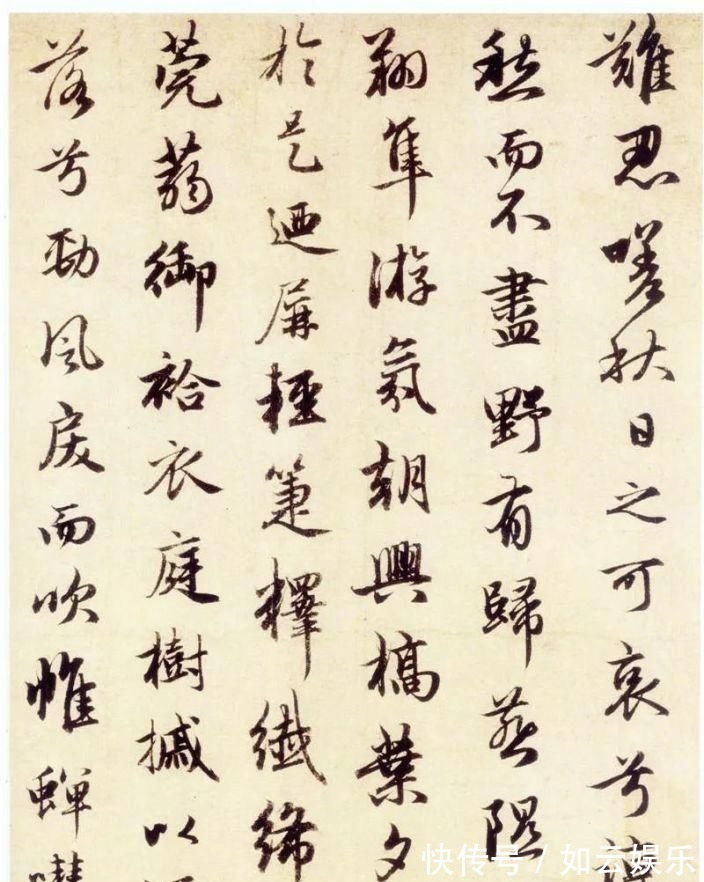 難忍嗟秋日之可哀兮
愁而不盡野有歸燕隰
翔隼游氛朝興槁葉夕
於是迺屏輕箑釋纖絺
莞蒻御袷衣庭樹摵以
落兮勁風戾而吹帷蟬嘒
快传号 / 如云娱乐